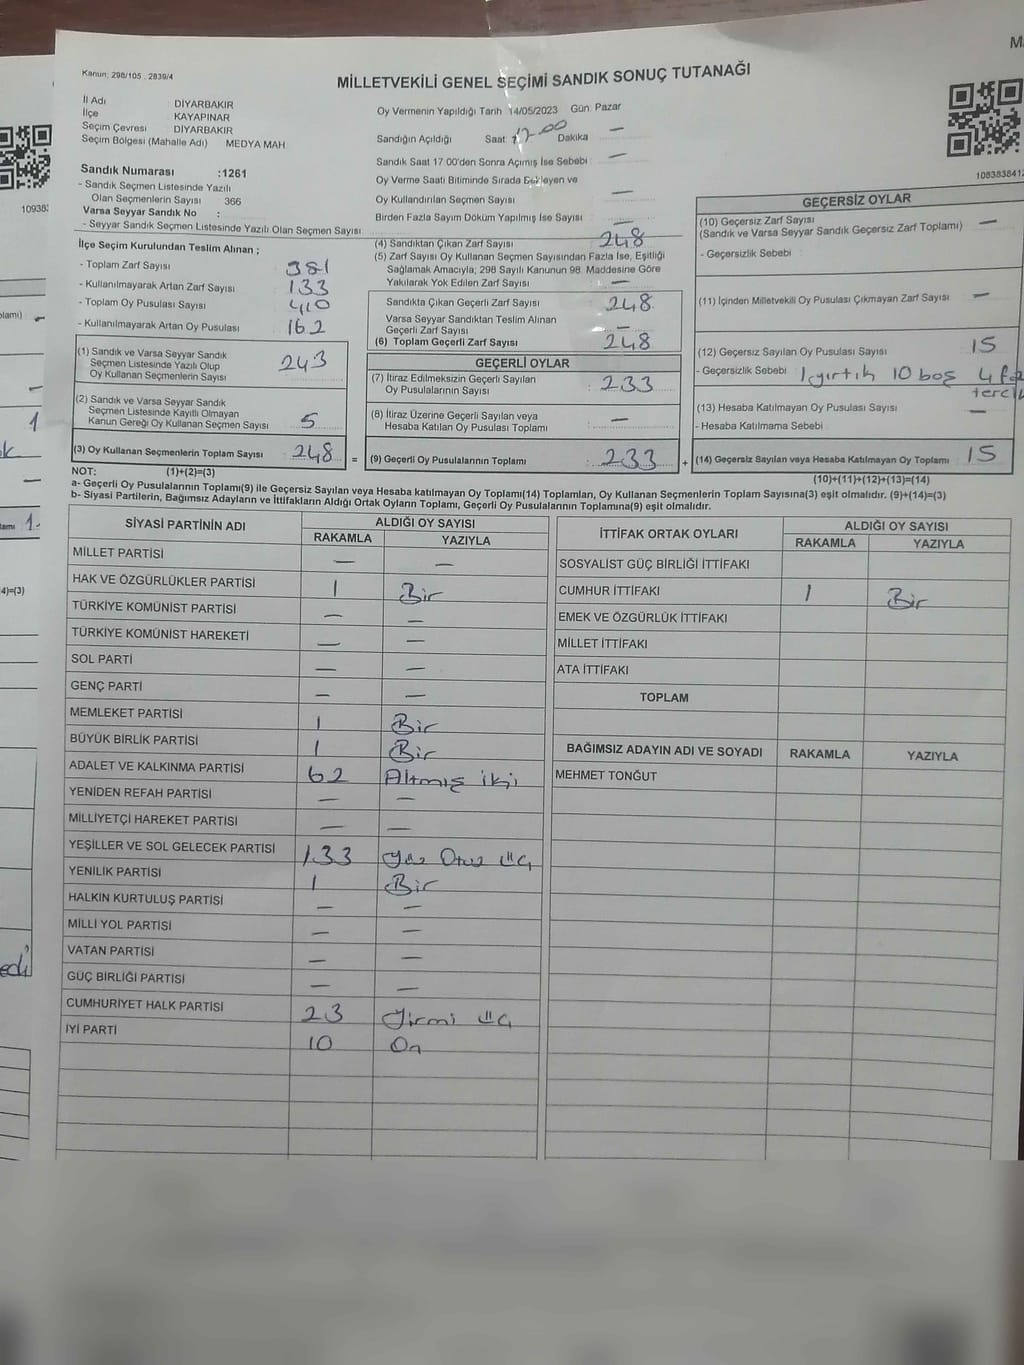 Kanun; 298/105 . 2839/4
MİLLETVEKİLİ GENEL SEÇİMİ SANDIK SONUÇ TUTANAĞI
İl Adı : DİYARBAKIR
İlçe : KAYAPINAR
Seçim Çevresi : DİYARBAKIR
Seçim Bölgesi (Mahalle Adı) MEDYA MAH.
Sandık Numarası :1261
- Sandık Seçmen Listesinde Yazılı
Olan Seçmenlerin Sayısı 366
Varsa Seyyar Sandık No :
- Seyyar Sandık Seçmen Listesinde Yazılı Olan Seçmen Sayısı
Oy Vermenin Yapıldığı Tarih 14/05/2023 Gün. Pazar
Sandığın Açıldığı Saat : 17-00 Dakika —
Sandık Saat 17 00'den Sonra Açmış İse Sebebi : —
Oy Verme Saati Bitiminde Sırada Bekleyen ve
Oy Kullandırılan Seçmen Sayısı —
Birden Fazla Sayım Döküm Yapılmış İse Sayısı —
108383841
10938
İlçe Seçim Kurulundan Teslim Alınan ;
- Toplam Zarf Sayısı 381
- Kullanılmayarak Artan Zarf Sayısı 133
- Toplam Oy Pusulası Sayısı 410
- Kullanılmayarak Artan Oy Pusulası 162
(1) Sandık ve Varsa Seyyar Sandık
Seçmen Listesinde Yazılı Olup
Oy Kullanan Seçmenlerin Sayısı 243
(2) Sandık ve Varsa Seyyar Sandık
Seçmen Listesinde Kayıtlı Olmayan
Kanun Gereği Oy Kullanan Seçmen Sayısı 5
(3) Oy Kullanan Seçmenlerin Toplam Sayısı 248 =
(4) Sandıktan Çıkan Zarf Sayısı 248
(5) Zarf Sayısı Oy Kullanan Seçmen Sayısından Fazla İse, Eşitliği
Sağlamak Amacıyla; 298 Sayılı Kanunun 98. Maddesine Göre
Yakılarak Yok Edilen Zarf Sayısı : —
Sandıkta Çıkan Geçerli Zarf Sayısı 248
Varsa Seyyar Sandıktan Teslim Alınan
Geçerli Zarf Sayısı —
(6) Toplam Geçerli Zarf Sayısı 248
GEÇERLİ OYLAR
(7) İtiraz Edilmeksizin Geçerli Sayılan
Oy Pusulalarının Sayısı : 233
(8) İtiraz Üzerine Geçerli Sayılan veya
Hesaba Katılan Oy Pusulası Toplamı : —
(9) Geçerli Oy Pusulalarının Toplamı : 233 +
GEÇERSİZ OYLAR
(10) Geçersiz Zarf Sayısı —
(Sandık ve Varsa Seyyar Sandık Geçersiz Zarf Toplamı)
- Geçersizlik Sebebi :
(11) İçinden Milletvekili Oy Pusulası Çıkmayan Zarf Sayısı —
(12) Geçersiz Sayılan Oy Pusulası Sayısı 15
- Geçersizlik Sebebi : 1 yırtık 10 boş 4
(13) Hesaba Katılmayan Oy Pusulası Sayısı —
- Hesaba Katılmama Sebebi
(14) Geçersiz Sayılan veya Hesaba Katılmayan Oy Toplamı 15
NOT: (1)+(2)=(3) (10)+(11)+(12)+(13)=(14)
a- Geçerli Oy Pusulalarının Toplamı(9) ile Geçersiz Sayılan veya Hesaba katılmayan Oy Toplamı(14) Toplamları, Oy Kullanan Seçmenlerin Toplam Sayısına(3) eşit olmalıdır. (9)+(14)=(3)
b- Siyasi Partilerin, Bağımsız Adayların ve İttifakların Aldığı Ortak Oyların Toplamı, Geçerli Oy Pusulalarının Toplamına(9) eşit olmalıdır.
SİYASİ PARTİNİN ADI ALDIĞI OY SAYISI
RAKAMLA YAZIYLA
MİLLET PARTİSİ — —
HAK VE ÖZGÜRLÜKLER PARTİSİ 1 Bir
TÜRKİYE KOMÜNİST PARTİSİ — —
TÜRKİYE KOMÜNİST HAREKETİ — —
SOL PARTİ — —
GENÇ PARTİ — —
MEMLEKET PARTİSİ 1 Bir
BÜYÜK BİRLİK PARTİSİ 1 Bir
ADALET VE KALKINMA PARTİSİ 62 Altmış iki
YENİDEN REFAH PARTİSİ — —
MİLLİYETÇİ HAREKET PARTİSİ — —
YEŞİLLER VE SOL GELECEK PARTİSİ 133 Yüz Otuz üç
YENİLİK PARTİSİ 1 Bir
HALKIN KURTULUŞ PARTİSİ — —
MİLLİ YOL PARTİSİ — —
VATAN PARTİSİ — —
GÜÇ BİRLİĞİ PARTİSİ — —
CUMHURİYET HALK PARTİSİ 23 Yirmi üç
İYİ PARTİ 10 On
İTTİFAK ORTAK OYLARI ALDIĞI OY SAYISI
RAKAMLA YAZIYLA
SOSYALİST GÜÇ BİRLİĞİ İTTİFAKI
CUMHUR İTTİFAKI 1 Bir
EMEK VE ÖZGÜRLÜK İTTİFAKI
MİLLET İTTİFAKI
ATA İTTİFAKI
TOPLAM
BAĞIMSIZ ADAYIN ADI VE SOYADI RAKAMLA YAZIYLA
MEHMET TONĞUT